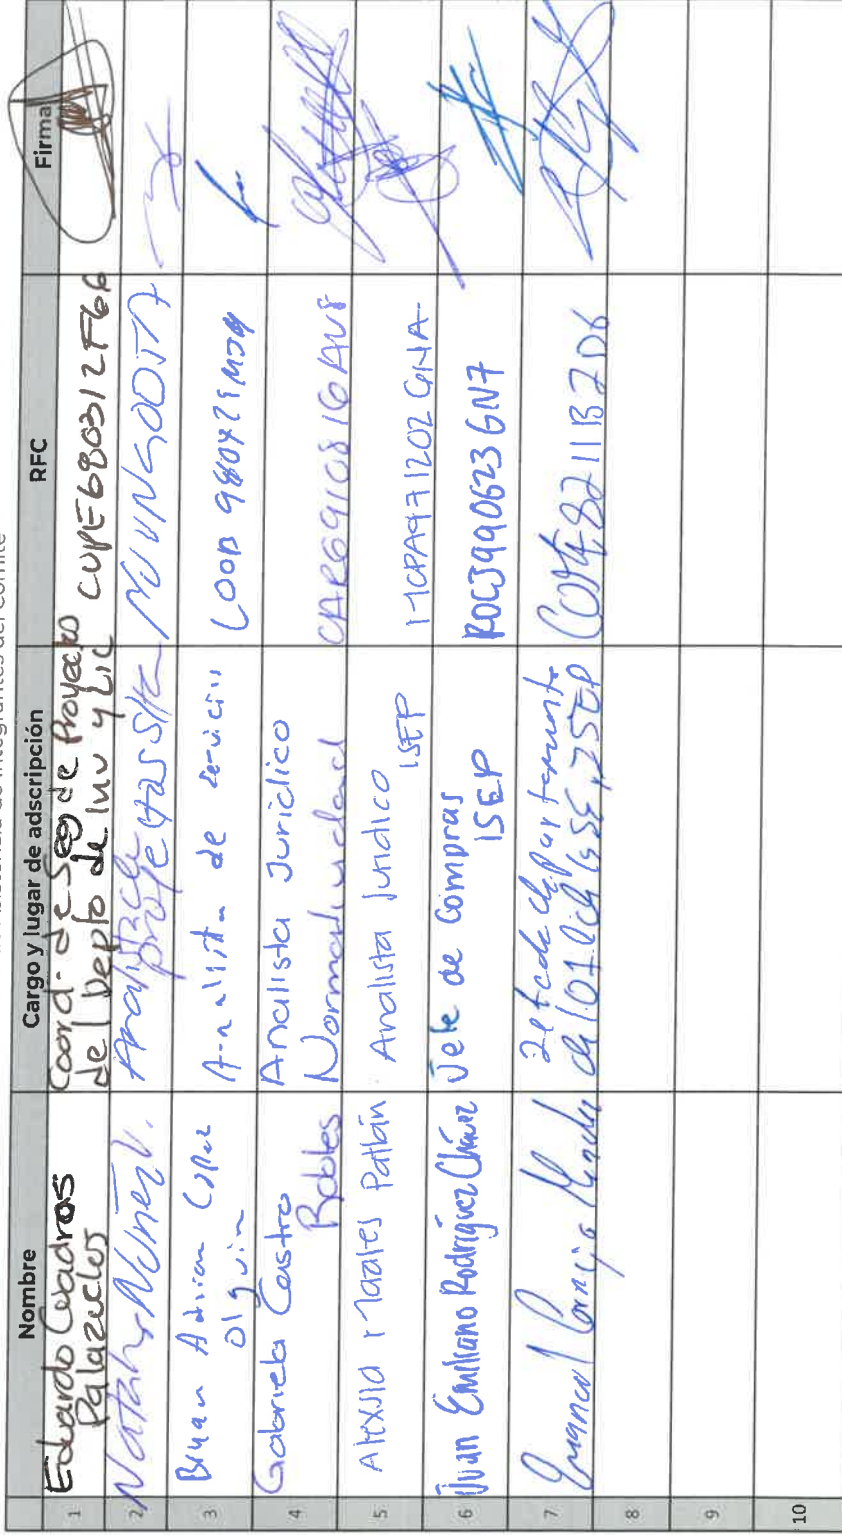 Asistencia de integrantes del Comité
Nombre Cargo y lugar de adscripción RFC Firma
1 Eduardo Cuadros Palazuelos Coord. de Seg de Proyectos del Depto de Inv y Lic CUPE680312F66
2 Natalia Núñez V. Analista de proyectos
3 Bryan Adrian López Olguin Analista de servicios LOOB
4 Gabriela Castro Robles Analista Jurídico Normatividad CARG910816AV8
5 Alexsia Morales Patlán Analista Jurídico ISEP MOPA971202GNA
6 Juan Emiliano Rodríguez Chávez Jefe de Compras ISEP ROCJ990623GN7
7 Jefe de departamento
8
9
10